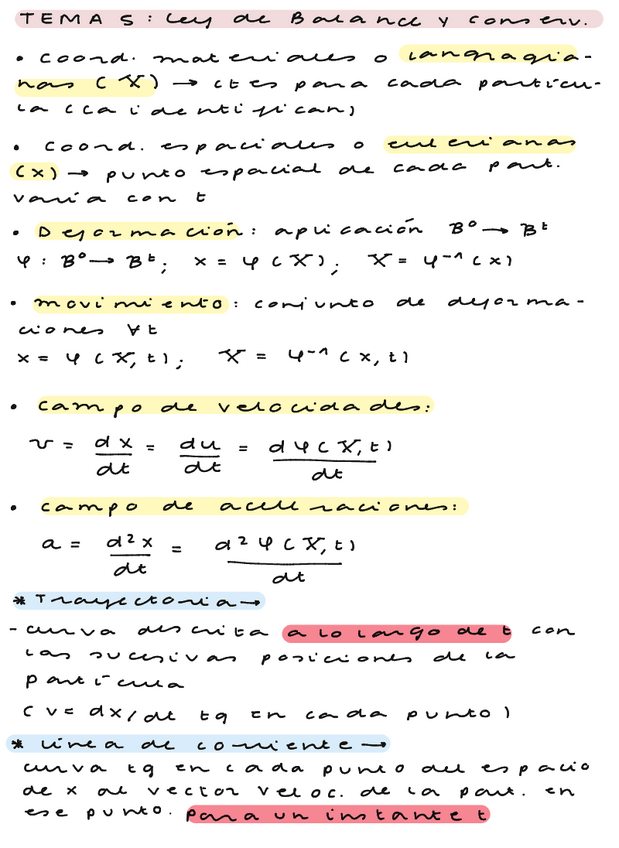 TEMA 5: Ley de Balance y conserv.
• coord. materiales o langragia-
nas (X) → ctes para cada partícu-
la (la identifican)
• coord. espaciales o eulerianas
(x) → punto espacial de cada part.
varía con t
• Deformación: aplicación B⁰ → Bᵗ
φ : B⁰ → Bᵗ; x = φ(X); X = φ⁻¹(x)
• movimiento: conjunto de deforma-
ciones ∀t
x = φ(X, t); X = φ⁻¹(x, t)
• campo de velocidades:
v = dx/dt = du/dt = dφ(X, t)/dt
• campo de aceleraciones:
a = d²x/dt = d²φ(X, t)/dt
* Trayectoria →
- curva descrita a lo largo de t con
las sucesivas posiciones de la
partícula
(v = dx/dt tq en cada punto)
* línea de corriente →
curva tq en cada punto del espacio
de x al vector veloc. de la part. en
ese punto. para un instante t